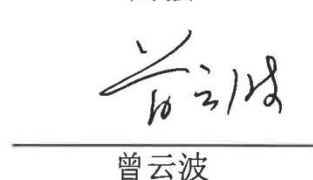 曾云波
曾云波